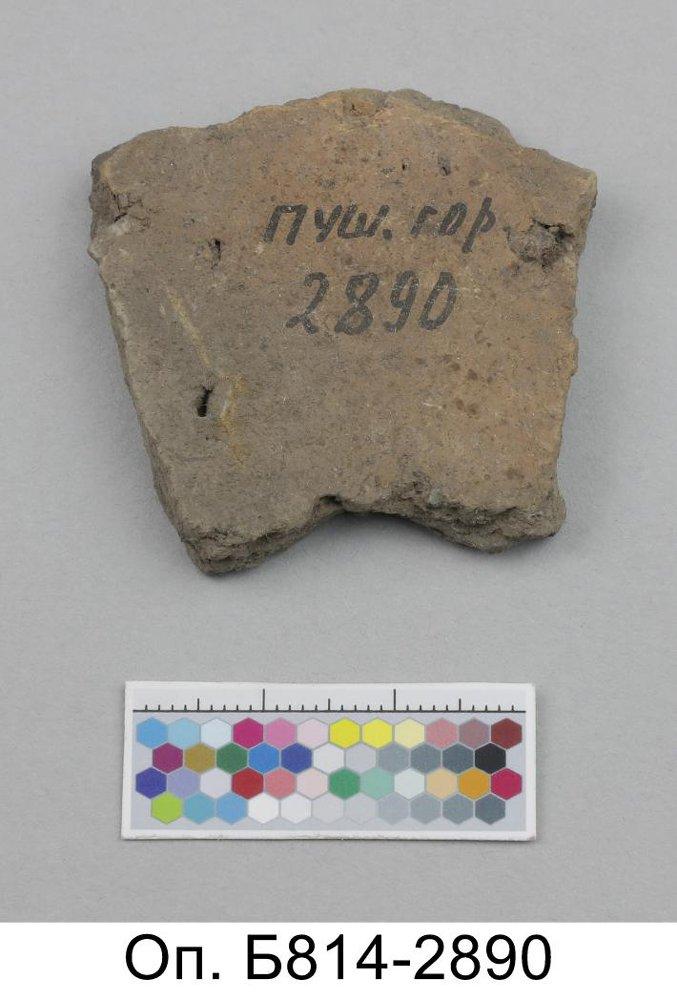 ПУШ. ГОР
2890
Оп. Б814-2890